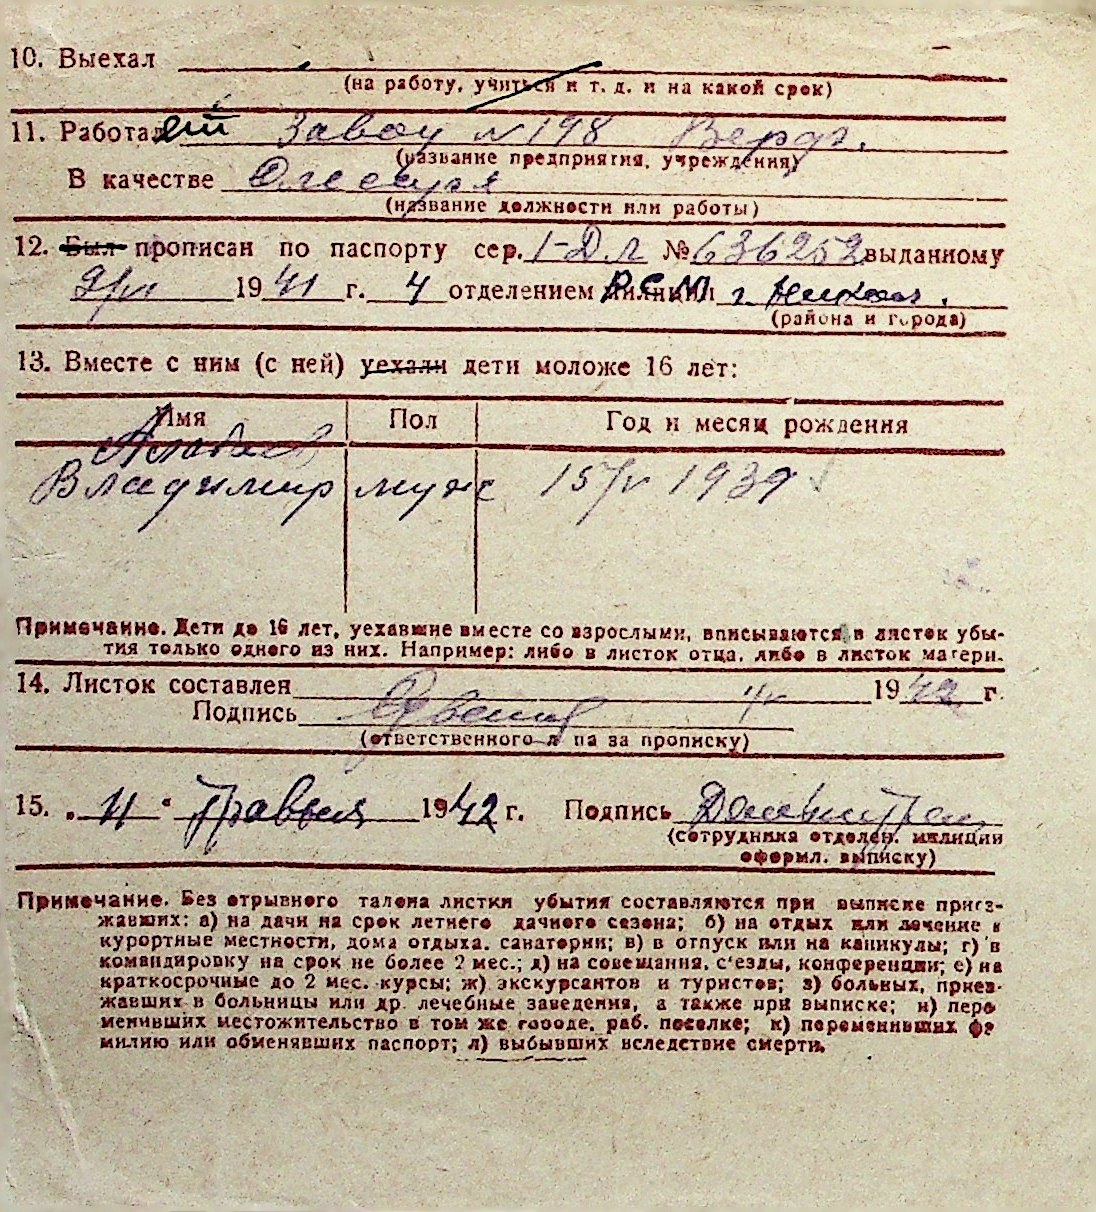 10. Выехал
(на работу, учиться и т. д. и на какой срок)
11. Работает Завод №198
(название предприятия, учреждения)
В качестве Слесаря
(название должности или работы)
12. Был прописан по паспорту сер. I-ДЛ № 636252 выданному
1941 г. 4 отделением милиции г.
(района и города)
13. Вместе с ним (с ней) уехали дети моложе 16 лет:
Имя Пол Год и месяц рождения
Владимир муж 15/V 1939
Примечание. Дети до 16 лет, уехавшие вместе со взрослыми, вписываются в листок убы-
тия только одного из них. Например: либо в листок отца, либо в листок матери.
14. Листок составлен 1942 г.
Подпись
(ответственного лица за прописку)
15. „11“ Травня 1942 г. Подпись
(сотрудника отделен. милиции
оформл. выписку)
Примечание. Без отрывного талона листки убытия составляются при выписке приез-
жавших: а) на дачи на срок летнего дачного сезона; б) на отдых или лечение в
курортные местности, дома отдыха, санатории; в) в отпуск или на каникулы; г) в
командировку на срок не более 2 мес.; д) на совещания, с'езды, конференции; е) на
краткосрочные до 2 мес. курсы; ж) экскурсантов и туристов; з) больных, приез-
жавших в больницы или др. лечебные заведения, а также при выписке; и) пере
менивших местожительство в том же городе, раб. поселке; к) переменивших фа
милию или обменявших паспорт; л) выбывших вследствие смерти.